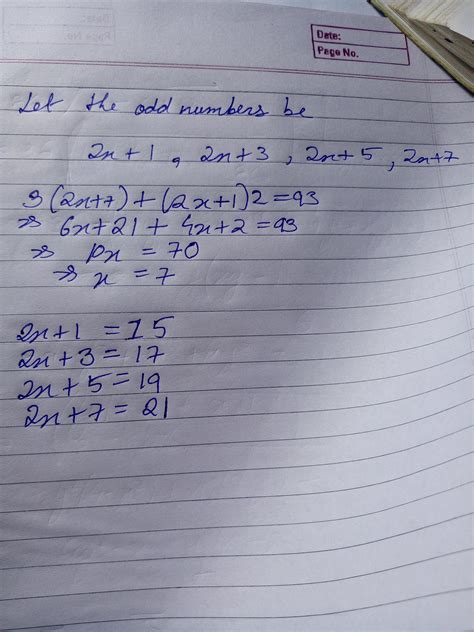 Date:
Page No.
Let the odd numbers be
2x+1, 2x+3, 2x+5, 2x+7
3(2x+7)+(2x+1)2=93
⇒ 6x+21+4x+2=93
⇒ 10x = 70
⇒ x = 7
2x+1 = 15
2x+3 = 17
2x+5 = 19
2x+7 = 21